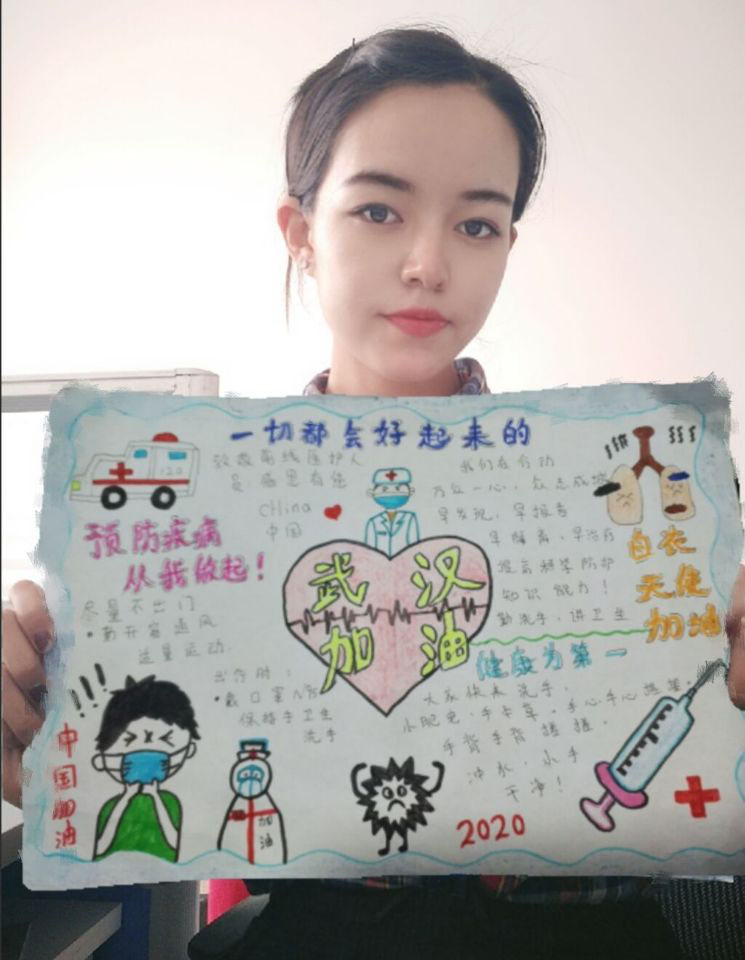 一切都会好起来的
120
致敬前线医护人
员,感恩有您
CHina
中国
预防疾病
从我做起!
尽量不出门
•勤开窗通风
适量运动.
出行时:
•戴口罩
保持手卫生
洗手
武汉
加油
我们在行动
万众一心,众志成城
早发现,早报告
早隔离,早治疗
提高科学防护
知识能力!
勤洗手,讲卫生
白衣
天使
加油
健康为第一
大家快来洗手,
手心手心搓搓,
手背手背搓搓,
冲水,小手
干净!
中国加油
加油
2020